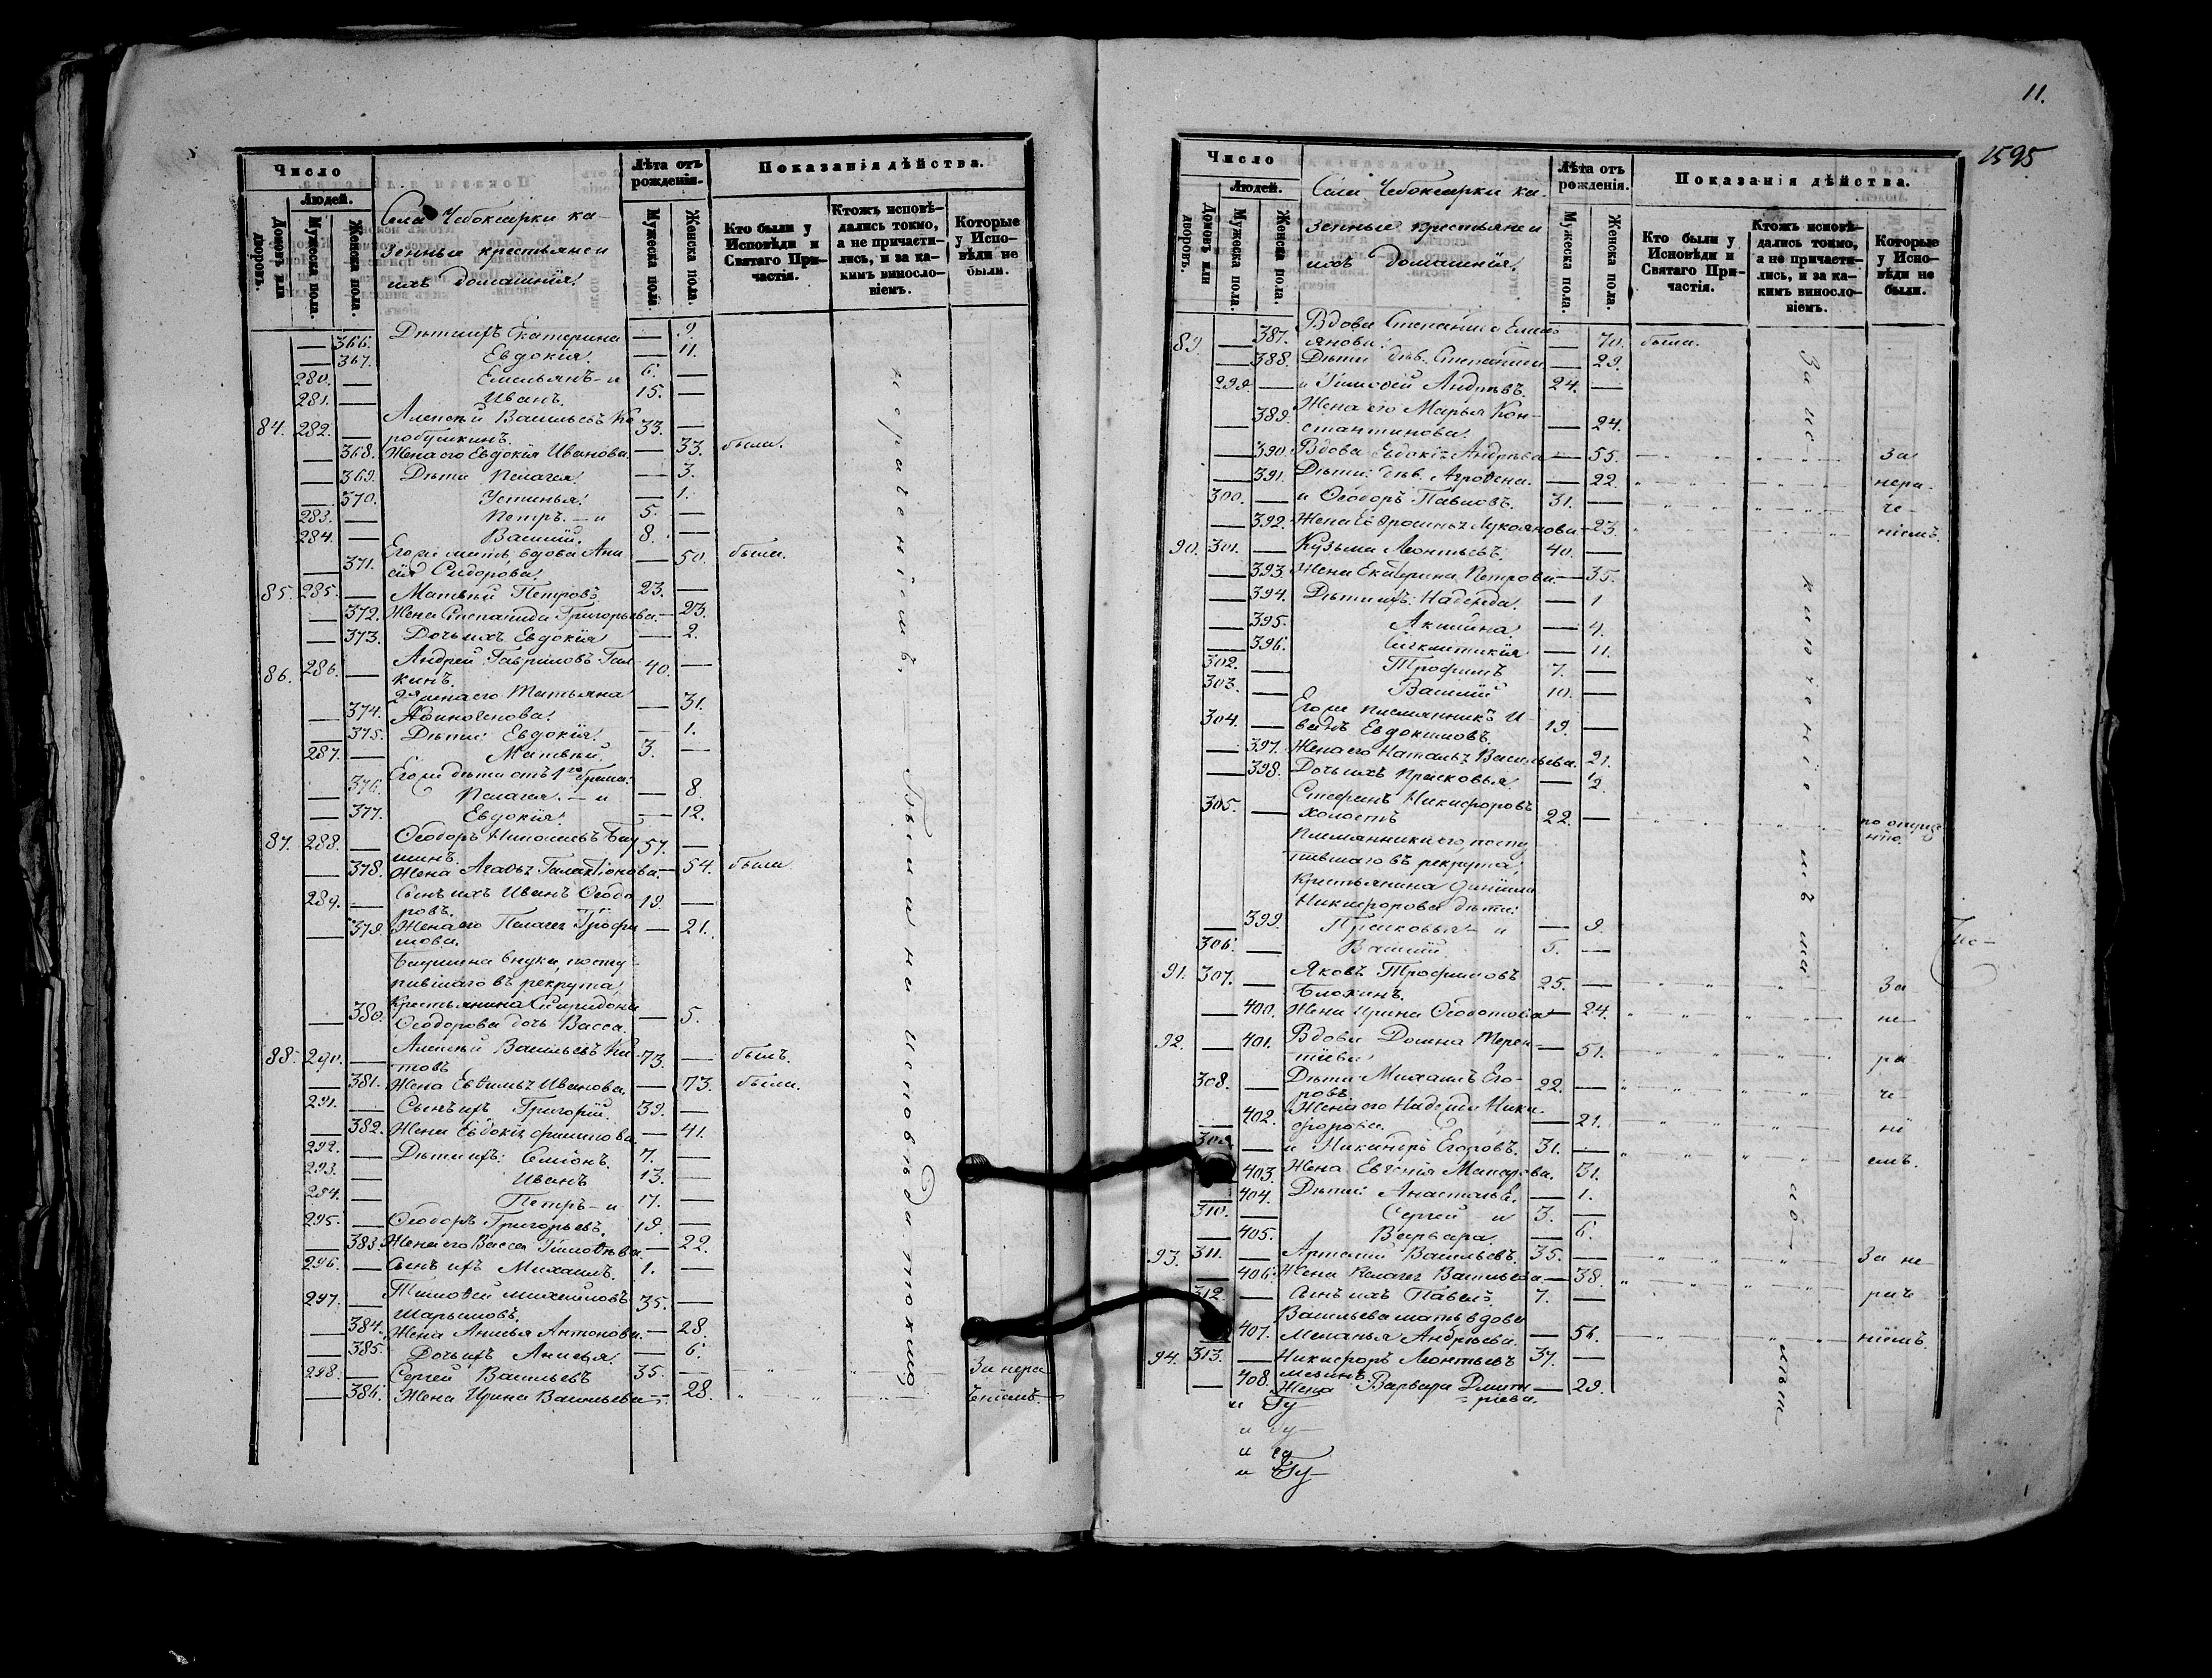 Число
Людей.
Домовъ или дворовъ.
Мужеска пола.
Женска пола.
Села Чебоксарки ка-
зенные крестьяне и
ихъ домашнія.
Лѣта отъ рожденія.
Мужеска пола
Женска пола.
Показанія дѣйства.
Кто были у Исповѣди и Святаго При-частія.
Ктожъ исповѣ-дались токмо, а не причасти-лись, и за ка-кимъ винослo-віемъ.
Которые у Испо-вѣди не были.
— 366. Дѣти ихъ Екатерина — 9.
— 367. Евдокія. — 11.
280. — Емельянъ - и 6. —
281. — Иванъ. 15. —
84. 282. — Алексѣй Васильевъ Ко-
робушкинъ. 33. —
— 368. Жена его Евдокія Иванова. — 33. была.
— 369. Дѣти Пелагея. — 3.
— 370. Устинья. — 1.
283. — Петръ. - и 5. —
284. — Василій. 8. —
— 371. Его же мать вдова Ани-
сія Сидорова. — 50. была.
85. 285. — Матвѣй Петровъ 23. —
— 372. Жена Степанида Григорьева. — 23.
— 373. Дочь ихъ Евдокія — 2.
86. 286. — Андрей Гавриловъ Гал-
кинъ. 40. —
— 374. 2я жена его Татьяна
Афиногенова. — 31.
— 375. Дѣти: Евдокія. — 1.
287. — Матвѣй. 3. —
Его же дѣти отъ 1го брака:
— 376. Пелагея. - и — 8.
— 377. Евдокія. — 12.
87. 288. — Ѳеодоръ Николаевъ
57. —
— 378. Жена Агафья Галактіонова. — 54. была.
289. — Сынъ ихъ Иванъ Ѳеодо-
ровъ. 19. —
— 379. Жена его Пелагея Трофи-
мова. — 21.
внуки, посту-
пившаго въ рекрута,
— 380. Крестьянина Спиридона
Ѳеодорова дочь Васса. — 5.
88. 290. — Алексѣй Васильевъ Ки-
товъ 73. — былъ.
— 381. Жена Евфимья Иванова. — 73. была.
291. — Сынъ ихъ Григорій. 39. —
— 382. Жена Евдокія Филипова. — 41.
292. — Дѣти ихъ: Симіонъ. 7. —
293. — Иванъ 13. —
294. — Петръ - и 17. —
295. — Ѳеодоръ Григорьевъ. 19. —
— 383. Жена его Васса Тимоѳѣева. — 22.
296. — Сынъ ихъ Михаилъ. 1. —
297. — Тимоѳей Михайловъ
Шарымовъ. 35. —
— 384. Жена Анисья Антонова. — 28.
— 385. Дочь ихъ Анисья. — 6.
298. — Сергей Васильевъ 35. — За нера-
— 386. Жена Ирина Васильева — 28. ченіемъ.
нераченіемъ.
Были на исповѣди токмо
11.
1595
Число
Людей.
Домовъ или дворовъ.
Мужеска пола.
Женска пола.
Села Чебоксарки ка-
зенные крестьяне и
ихъ домашнія.
Лѣта отъ рожденія.
Мужеска пола
Женска пола.
Показанія дѣйства.
Кто были у Исповѣди и Святаго При-частія.
Ктожъ исповѣ-дались токмо, а не причасти-лись, и за ка-кимъ винослo-віемъ.
Которые у Испо-вѣди не были.
89. — 387. Вдова Степанида Емель-
янова. — 70. была.
— 388. Дѣти дѣв. Степанида — 29.
299. — и Тимоѳей Андрѣевъ. 24. —
— 389. Жена его Марья Кон-
стантинова. — 24.
— 390. Вдова Евдокія Андрѣева — 55. За
— 391. Дѣти: дѣв. Агрофена. — 22. нера-
300. — и Ѳеодоръ Павловъ. 31. — че-
— 392. Жена Евфросинья Лукоянова — 23. ніемъ.
90. 301. — Кузьма Леонтьевъ. 40. —
— 393. Жена Екатерина Петрова — 35.
— 394. Дѣти ихъ: Надежда. — 1
— 395. Акилина. — 4.
— 396. Сигклитикія — 11.
302. — Трофимъ 7. —
303. — Василій 10. —
304. — Его же племянникъ И-
ванъ Евдокимовъ. 19. —
— 397. Жена его Наталья Васильева. 21.
— 398. Дочь ихъ Прасковья — 2.
305. — Стефанъ Никифоровъ
холостъ 22. — по опуще-
нію.
Племянники его, посту-
пившаго въ рекрута,
Крестьянина Даніила
Никифорова дѣти:
— 399. Прасковья - и — 9.
306. — Василій. 5. —
91. 307. — Яковъ Трофимовъ
Блохинъ. 25. — За
— 400. Жена Ирина Ѳеодотова — 24. не-
92. — 401. Вдова Домна Терен-
тіева — 51. ра
308. — Дѣти Михаилъ Его-
ровъ. 22. — че-
— 402. Жена его Надежда Ники-
форова. — 21. ні
309. — и Никаноръ Егоровъ. 31. — емъ.
403. Жена Евгенія Макарова. 31.
— 404. Дѣти: Анастасья. — 1.
310. — Сергей - и 3. —
— 405. Варвара. — 6.
93. 311. — Артемій Васильевъ. 35. — За не-
— 406. Жена Пелагея Васильева — 38.
312. — Сынъ ихъ Павелъ. 7. — рач
Васильева мать, вдова
407. Меланья Андрѣева. — 56. ніемъ.
94. 313. — Никифоръ Леонтьевъ 37. —
— 408. Жена Варвара Дмит-
ріева. — 29.
За ис-
ключеніемъ